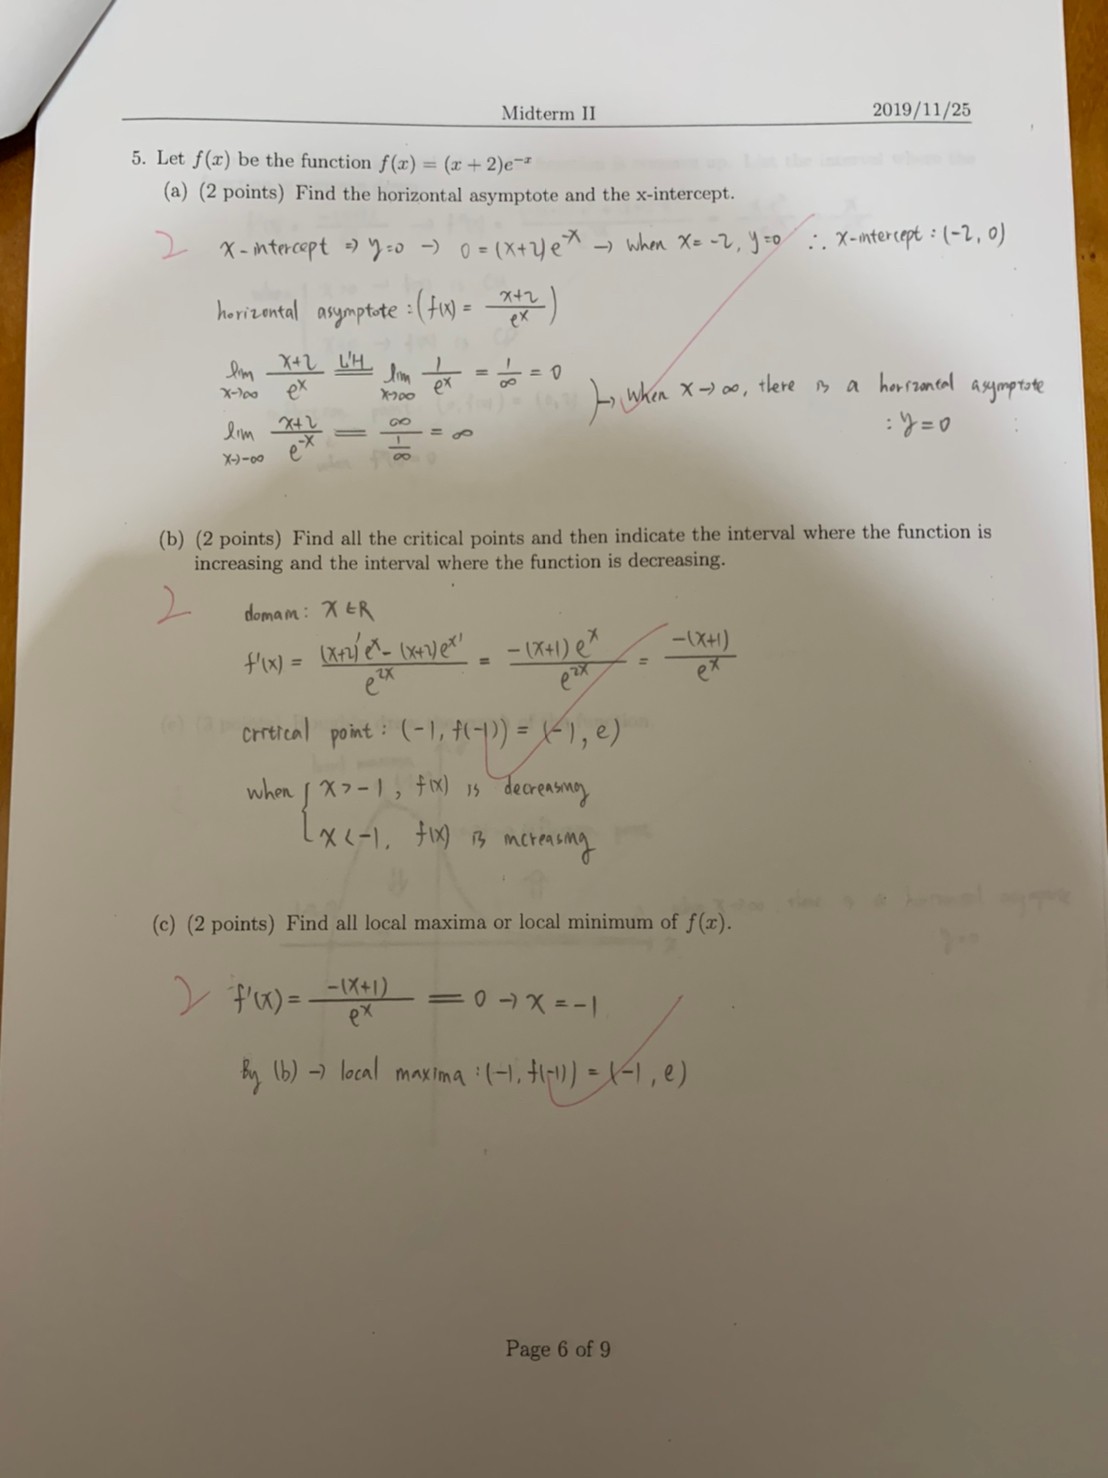 Midterm II 2019/11/25
5. Let f(x) be the function f(x) = (x + 2)e^{-x}
(a) (2 points) Find the horizontal asymptote and the x-intercept.
2 x-intercept ⇒ y=0 → 0 = (x+2)e^{-x} → when x= -2, y=0 ∴ x-intercept : (-2, 0)
horizontal asymptote : (f(x) = \frac{x+2}{e^x})
lim_{x→∞} \frac{x+2}{e^x} \overset{L'H}{=} lim_{x→∞} \frac{1}{e^x} = \frac{1}{∞} = 0
→ when x→∞, there is a horizontal asymptote
: y=0
lim_{x→-∞} \frac{x+2}{e^{-x}} = \frac{∞}{\frac{1}{∞}} = ∞
(b) (2 points) Find all the critical points and then indicate the interval where the function is
increasing and the interval where the function is decreasing.
2 domain: x∈R
f'(x) = \frac{(x+2)'e^x - (x+2)e^{x'}}{e^{2x}} = \frac{-(x+1)e^x}{e^{2x}} = \frac{-(x+1)}{e^x}
critical point : (-1, f(-1)) = (-1, e)
when { x>-1, f(x) is decreasing
x<-1, f(x) is increasing
(c) (2 points) Find all local maxima or local minimum of f(x).
2 f'(x) = \frac{-(x+1)}{e^x} = 0 → x = -1
By (b) → local maxima : (-1, f(-1)) = (-1, e)
Page 6 of 9